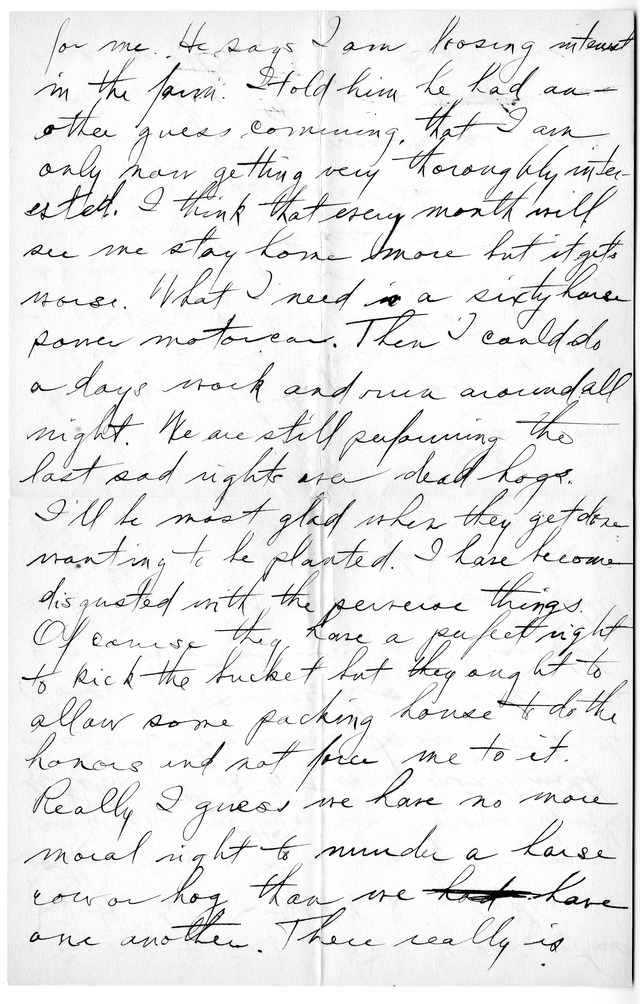 for me. He says I am loosing interest
in the farm. I told him he had an-
other guess comming, that I am
only now getting very thoroughly inter-
ested. I think that every month will
see me stay home more but it gets
worse. What I need is a sixty horse
power motor car. Then I could do
a days work and run around all
night. We are still performing the
last sad rights over dead hogs.
I'll be most glad when they get done
wanting to be planted. I have become
disgusted with the perverse things.
Of course they have a perfect right
to kick the bucket but they ought to
allow some packing house to do the
honors and not force me to it.
Really I guess we have no more
moral right to murder a horse
cow or hog than we had have
one another. There really is